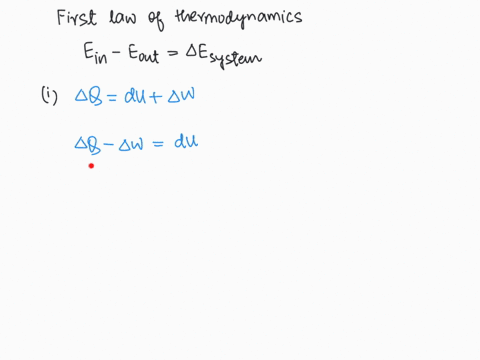 First law of thermodynamics
Ein - Eout = ΔEsystem
(i) ΔQ = du + Δw
ΔQ - Δw = du